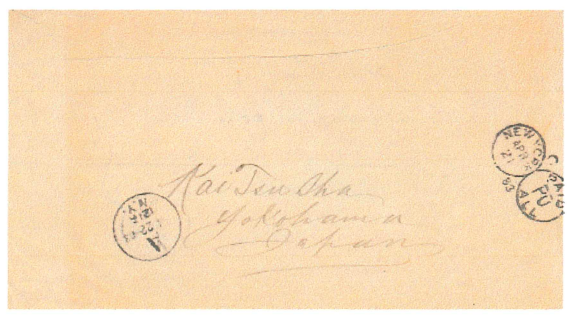 NEW YORK
APR
21
83
PAID
ALL
Kai Tsu Sha
Yokohama
Japan
N.Y.